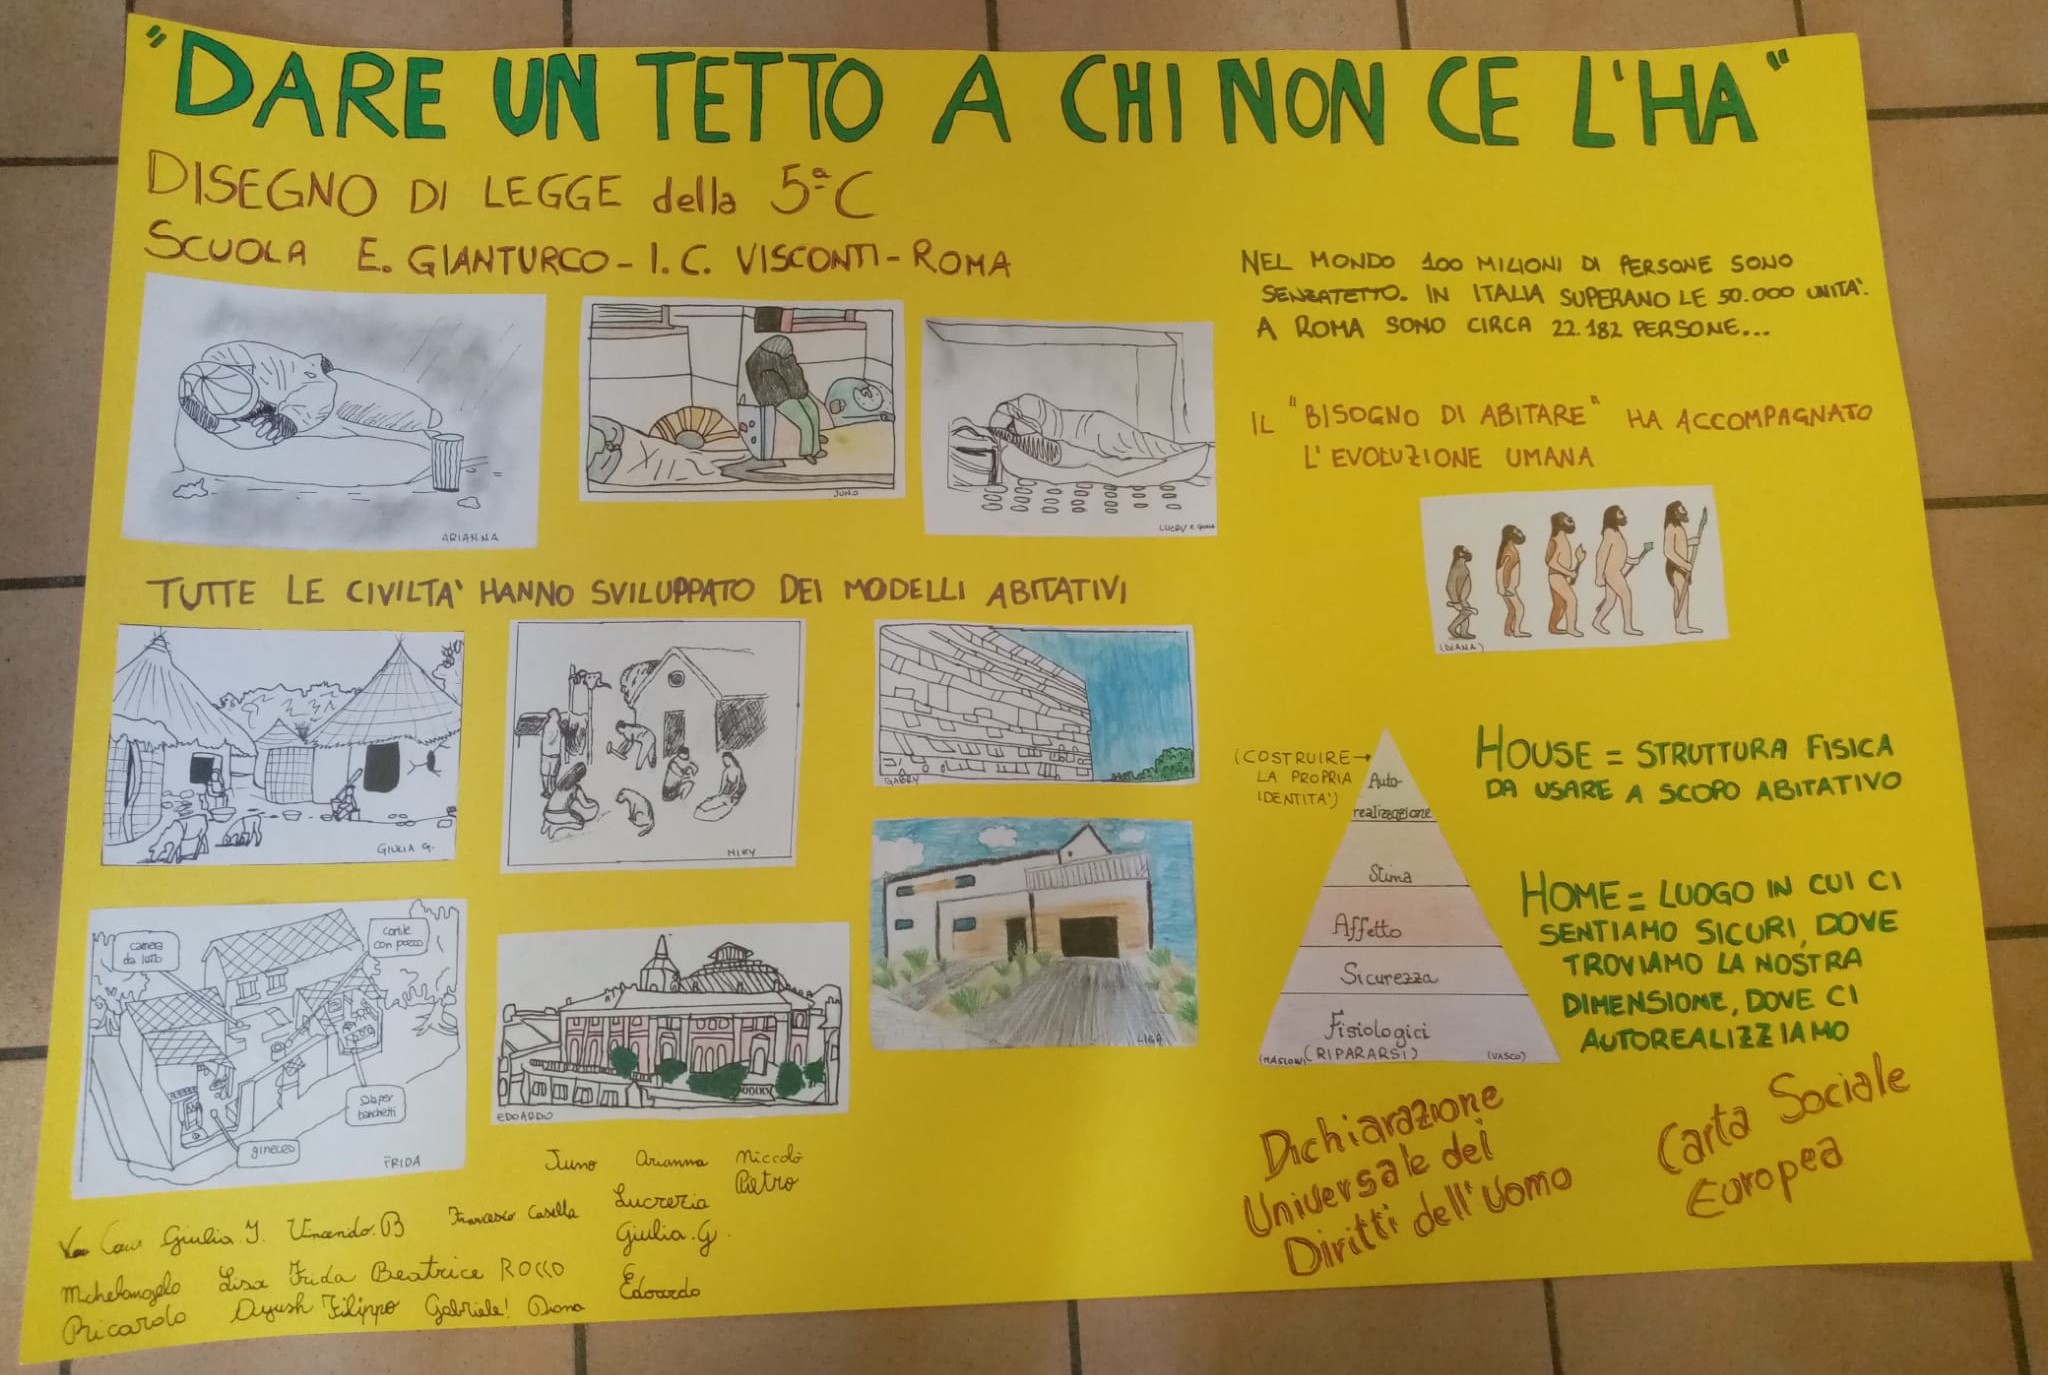 "DARE UN TETTO A CHI NON CE L'HA"
DISEGNO DI LEGGE della 5ª C
SCUOLA E. GIANTURCO - I.C. VISCONTI - ROMA
ARIANNA
JUNO
NEL MONDO 100 MILIONI DI PERSONE SONO
SENZATETTO. IN ITALIA SUPERANO LE 50.000 UNITA'.
A ROMA SONO CIRCA 22.182 PERSONE...
IL "BISOGNO DI ABITARE" HA ACCOMPAGNATO
L'EVOLUZIONE UMANA
(DIANA)
TUTTE LE CIVILTA' HANNO SVILUPPATO DEI MODELLI ABITATIVI
GIULIA G.
MIKY
GABRY
camera
da letto
cortile
con pozzo
sala per
banchetti
gineceo
FRIDA
EDOARDO
LISA
(COSTRUIRE →
LA PROPRIA
IDENTITA')
Auto-
realizzazione
Stima
Affetto
Sicurezza
Fisiologici
(MASLOW) (RIPARARSI) (VASCO)
HOUSE = STRUTTURA FISICA
DA USARE A SCOPO ABITATIVO
HOME = LUOGO IN CUI CI
SENTIAMO SICURI, DOVE
TROVIAMO LA NOSTRA
DIMENSIONE, DOVE CI
AUTOREALIZZIAMO
Dichiarazione
Universale dei
Diritti dell'uomo
Carta Sociale
Europea
Juno Arianna Niccolò
Pietro
Giulia. Francesco Casella Lucrezia
Giulia.G.
Michelangelo Lisa Frida Beatrice ROCCO Edoardo
Riccardo Ayush Filippo Gabriele! Diana